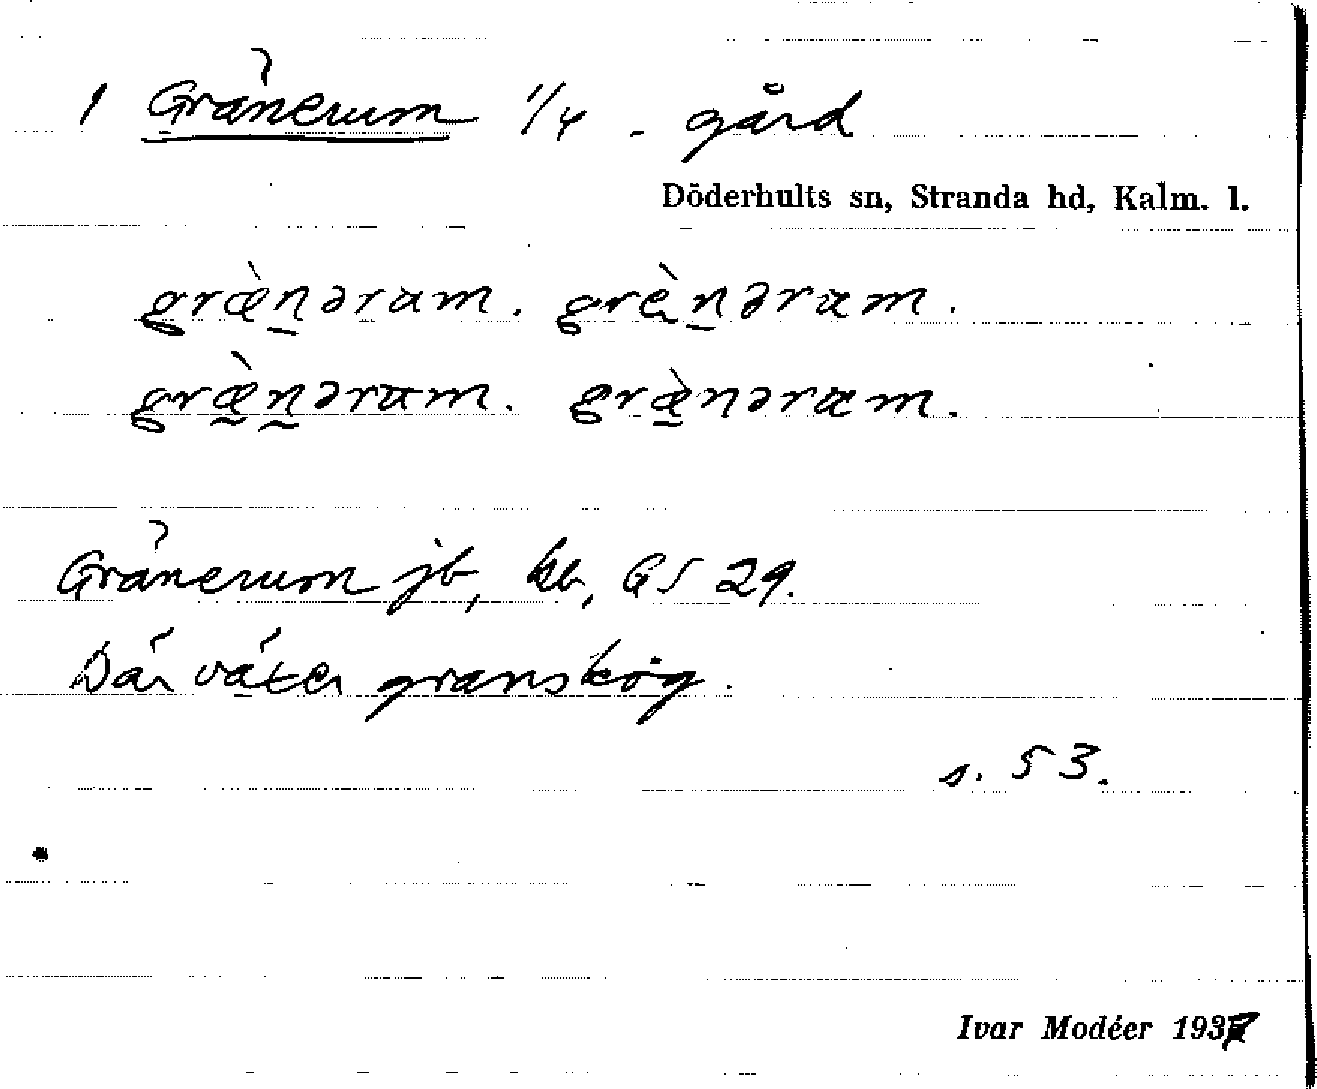 1 Gränerum 1/4 - gård
Döderhults sn, Stranda hd, Kalm. l.
græ̀n̠əram. grèn̠əram.
græ̠̀n̠əram. græ̠̀nəræm.
Gränerum jb, kb, GS 29.
Där växer granskog.
s. 53.
Ivar Modéer 1937